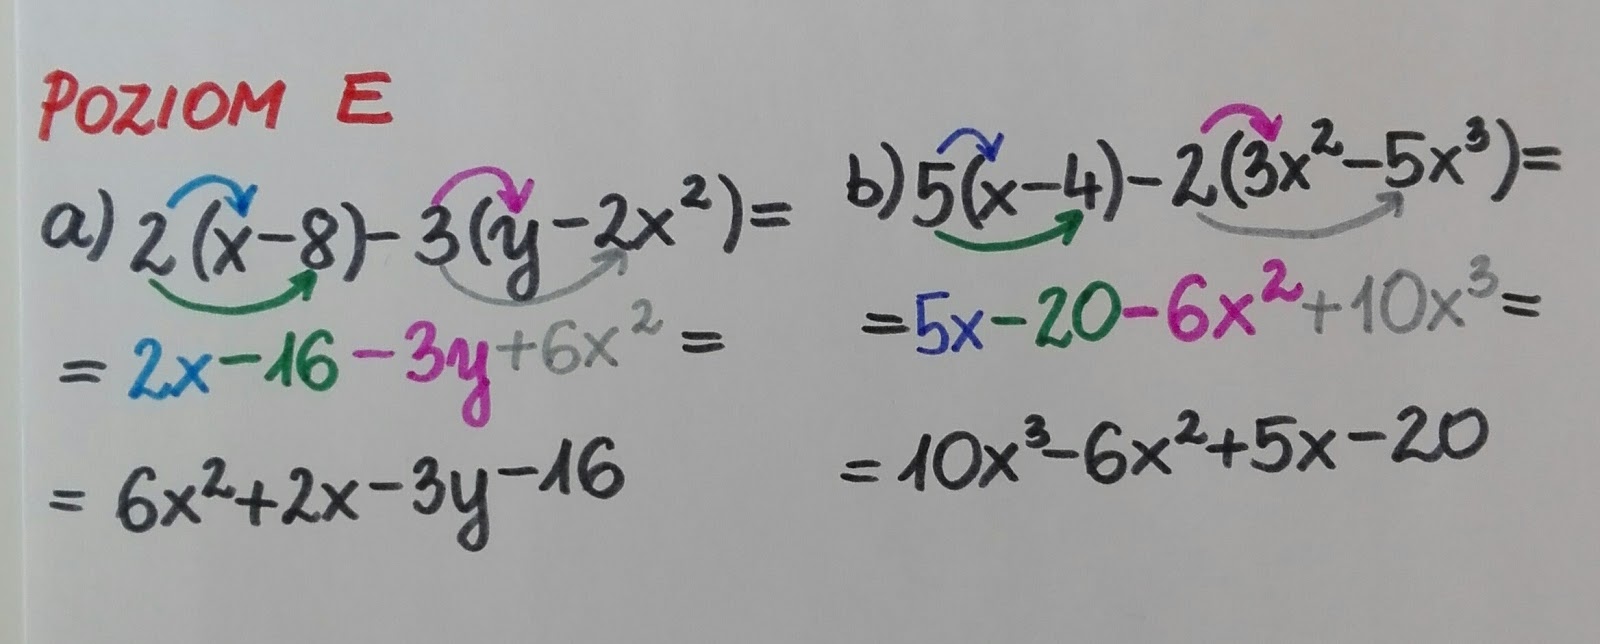 POZIOM E
a) 2(x-8)-3(y-2x²)=
= 2x-16-3y+6x² =
= 6x²+2x-3y-16
b) 5(x-4)-2(3x²-5x³)=
=5x-20-6x²+10x³=
=10x³-6x²+5x-20